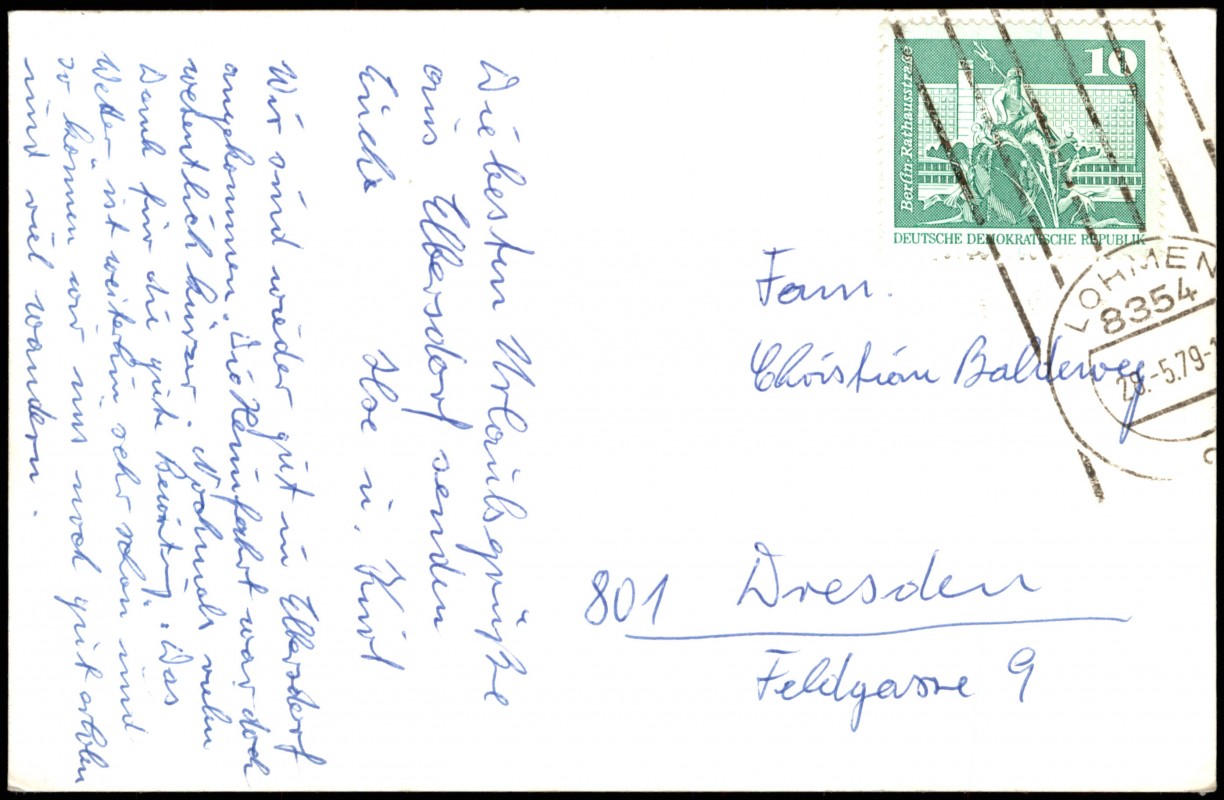 Die besten Urlaubsgrüße
aus Elbersdorf senden
Euch Ilse u. Kurt
Wir sind wieder gut in Elbersdorf
angekommen. Die Heimfahrt war doch
wesentlich kürzer. Nochmals vielen
Dank für die gute Bewirtg. Das
Wetter ist weiterhin sehr schön und
so können wir uns noch gut erholen
und viel wandern.
10
Berlin-Rathausstraße
DEUTSCHE DEMOKRATISCHE REPUBLIK
LOHMEN
8354
-5.79-1
Fam.
Christian Baldeweg
801 Dresden
Feldgasse 9